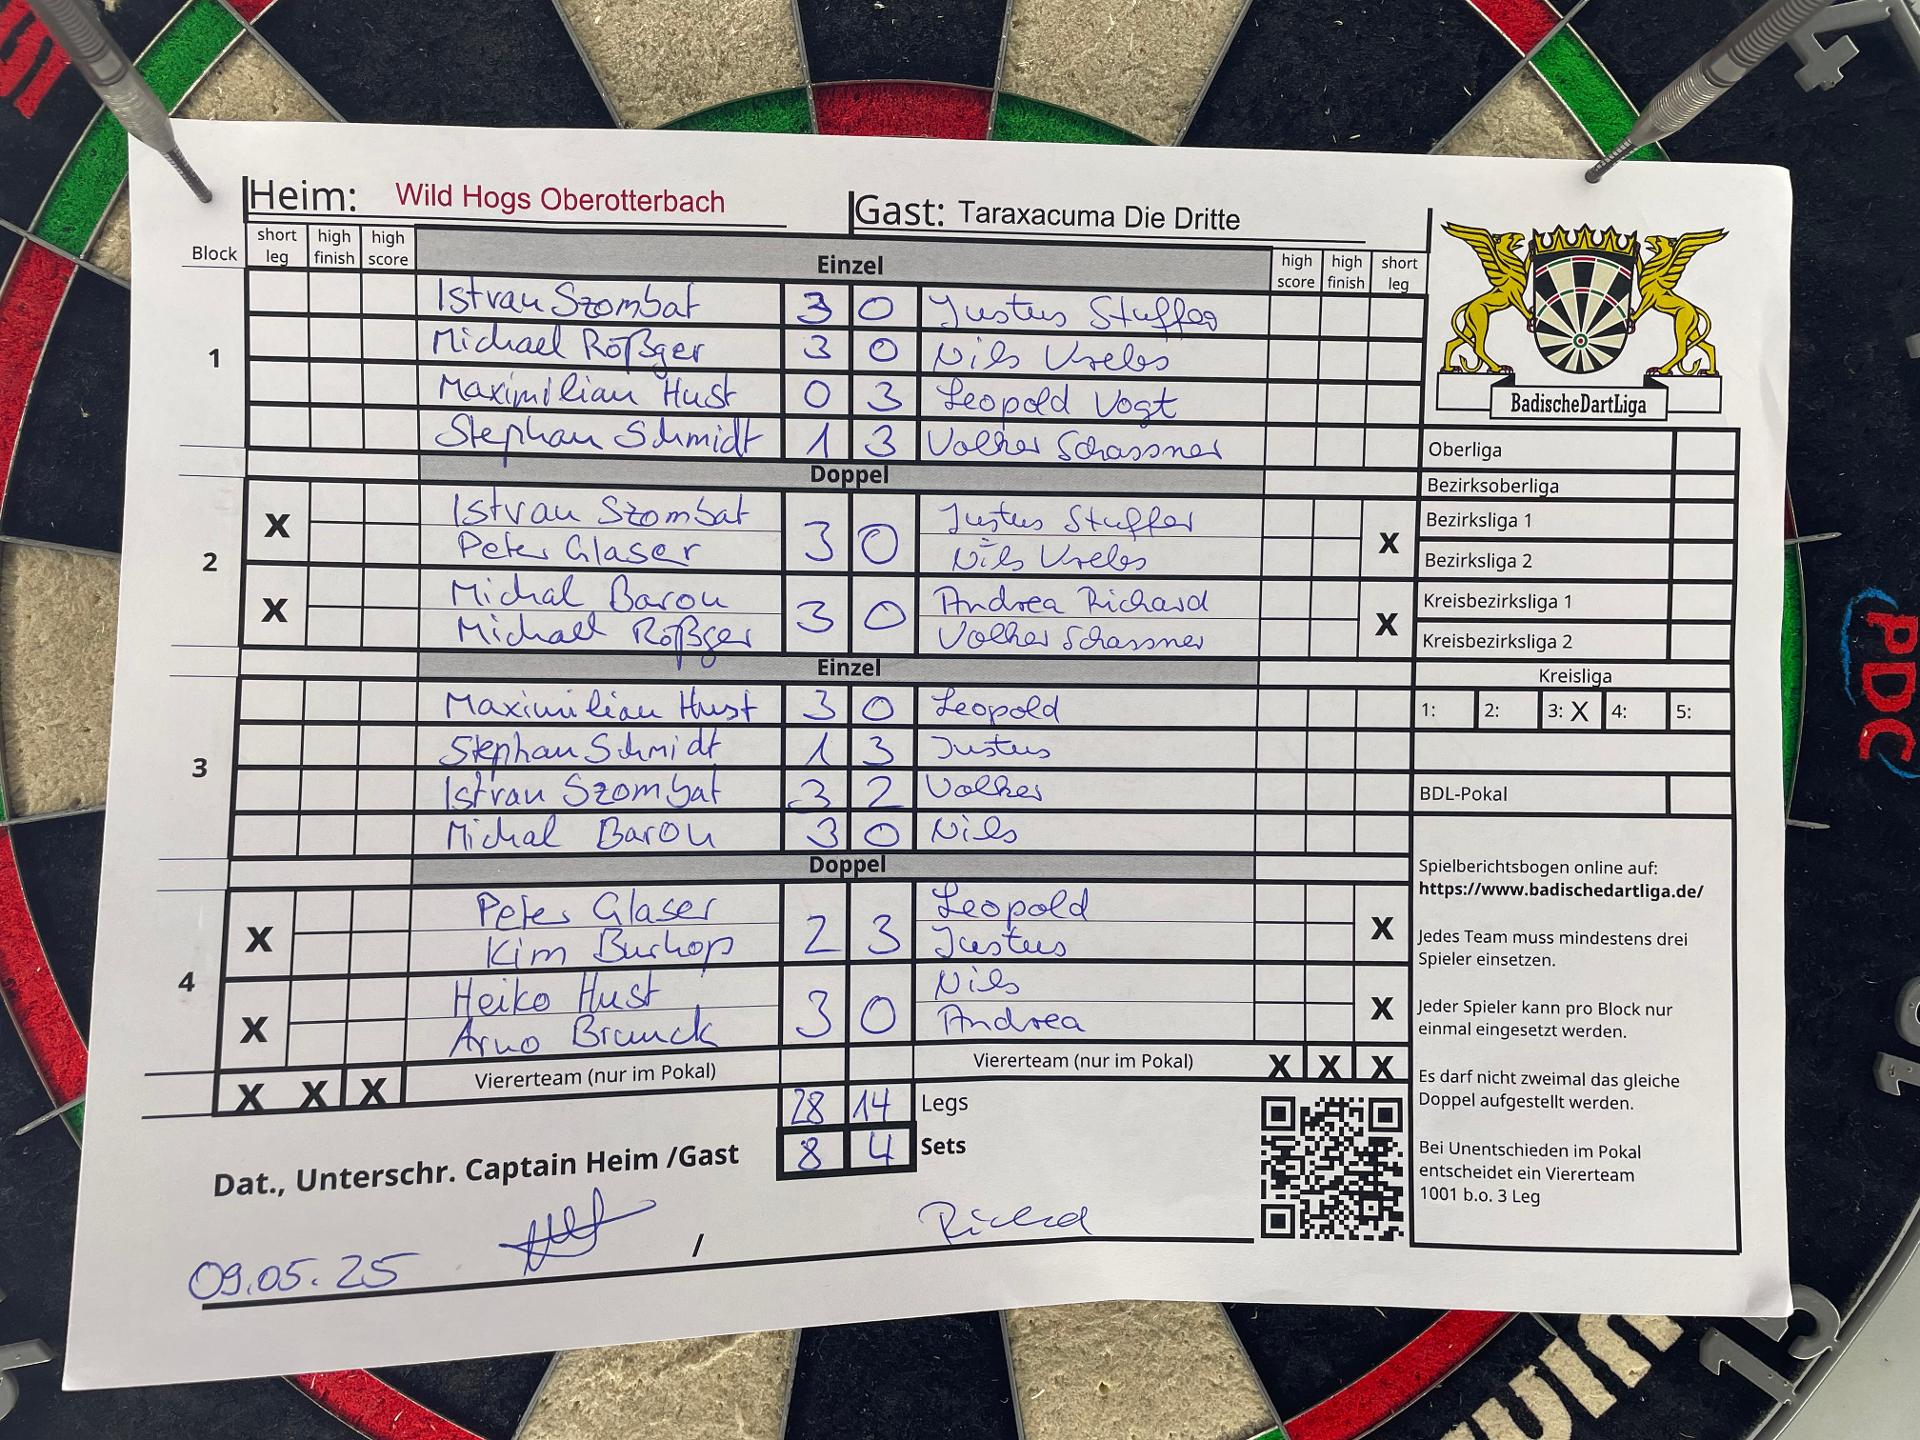 Heim: Wild Hogs Oberotterbach Gast: Taraxacuma Die Dritte
Block short leg high finish high score Einzel high score high finish short leg
1
Istvan Szombat 3 0 Justus Stuffer
Michael Rößger 3 0 Nils Krebs
Maximilian Hust 0 3 Leopold Vogt
Stephan Schmidt 1 3 Volker Schassner
Doppel
2
X Istvan Szombat 3 0 Justus Stuffer X
Peter Glaser Nils Krebs
X Michal Baron 3 0 Andrea Richard X
Michael Rößger Volker Schassner
Einzel
3
Maximilian Hust 3 0 Leopold
Stephan Schmidt 1 3 Justus
Istvan Szombat 3 2 Volker
Michal Baron 3 0 Nils
Doppel
4
X Peter Glaser 2 3 Leopold X
Kim Burhop Justus
X Heiko Hust 3 0 Nils X
Arno Brunck Andrea
X X X Viererteam (nur im Pokal) Viererteam (nur im Pokal) X X X
28 14 Legs
8 4 Sets
Dat., Unterschr. Captain Heim /Gast
09.05.25 / Richard
BadischeDartLiga
Oberliga
Bezirksoberliga
Bezirksliga 1
Bezirksliga 2
Kreisbezirksliga 1
Kreisbezirksliga 2
Kreisliga
1: 2: 3: X 4: 5:
BDL-Pokal
Spielberichtsbogen online auf:
https://www.badischedartliga.de/
Jedes Team muss mindestens drei
Spieler einsetzen.
Jeder Spieler kann pro Block nur
einmal eingesetzt werden.
Es darf nicht zweimal das gleiche
Doppel aufgestellt werden.
Bei Unentschieden im Pokal
entscheidet ein Viererteam
1001 b.o. 3 Leg
PDC